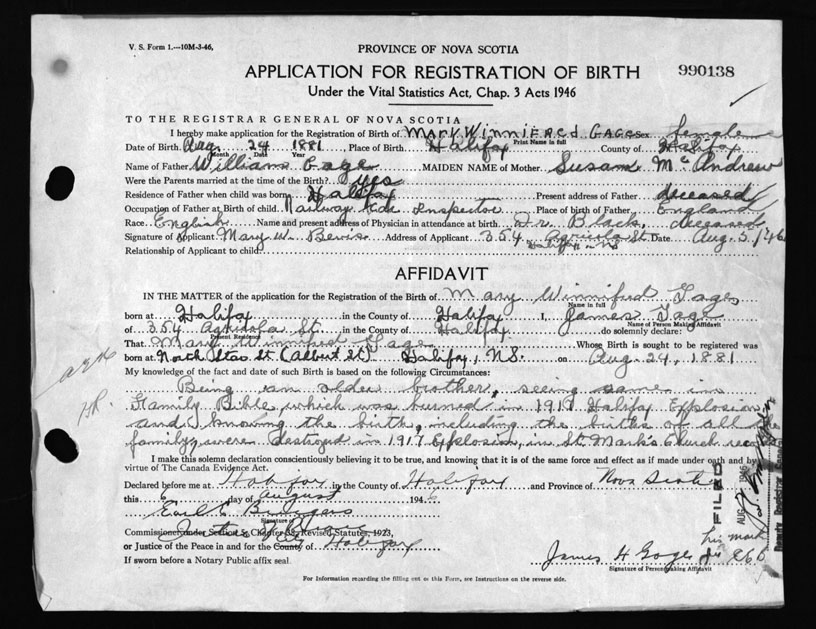 V. S. Form 1.—10M-3-46,
PROVINCE OF NOVA SCOTIA
APPLICATION FOR REGISTRATION OF BIRTH
990138
Under the Vital Statistics Act, Chap. 3 Acts 1946
TO THE REGISTRAR GENERAL OF NOVA SCOTIA
I hereby make application for the Registration of Birth of Mary Winnifred Gage Sex female
Print Name in full
Date of Birth Aug 24 1881 Place of Birth Halifax County of Halifax
Month Date Year
Name of Father William Gage MAIDEN NAME of Mother Susan McAndrew
Were the Parents married at the time of the Birth? yes
Residence of Father when child was born Halifax Present address of Father deceased
Occupation of Father at Birth of child Railway Inspector Place of birth of Father England
Race English Name and present address of Physician in attendance at birth Dr. Black, deceased
Signature of Applicant Mary W. Bevis Address of Applicant 354 Agricola St. Date Aug. 5/46
Halifax NS
Relationship of Applicant to child
AFFIDAVIT
IN THE MATTER of the application for the Registration of the Birth of Mary Winnifred Gage
Name in full
born at Halifax in the County of Halifax I, James Gage
Name of Person Making Affidavit
of 354 Agricola St. in the County of Halifax do solemnly declare:
Present Residence
That Mary Winnifred Gage Whose Birth is sought to be registered
born at North Star St. (Albert St.) Halifax, N.S. on Aug. 24, 1881
My knowledge of the fact and date of such Birth is based on the following Circumstances:
Being an older brother, seeing same in
Family Bible which was burned in 1917 Halifax Explosion
and I knowing the births, including the births of all the
family, were destroyed in 1917 Explosion, in St. Mark's Church
I make this solemn declaration conscientiously believing it to be true, and knowing that it is of the same force and effect as if made under oath and by
virtue of The Canada Evidence Act.
Declared before me at Halifax in the County of Halifax and Province of Nova Scotia
this 6 day of August 1946
Signature of
Commissioner under Section 2, Chapter 38, Revised Statutes, 1923,
or Justice of the Peace in and for the County of Halifax
If sworn before a Notary Public affix seal.
James H Gage his mark
Signature of Person Making Affidavit
For Information regarding the filling out of this Form, see Instructions on the reverse side.
FILED
AUG 1946
Deputy Registrar General